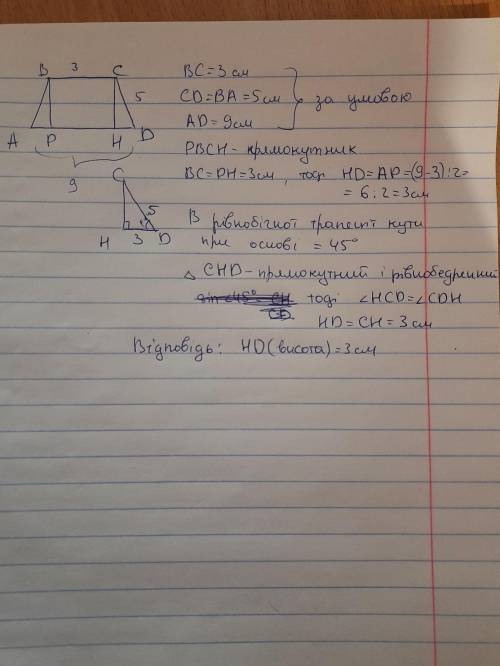 B 3 C
5
A P H D
9
BC=3 см
CD=BA=5см
AD=9см
за умовою
PBCH-прямокутник
BC=PH=3см, тоді HD=AP=(9-3):2=
=6:2=3см
C
5
H 3 D
В рівнобічної трапеції кути
при основі =45°
△ CHD-прямокутний і рівнобедренний
sin∠45°=CH
CD
тоді ∠HCD=∠CDH
HD=CH=3см
Відповідь: HD(висота)=3см